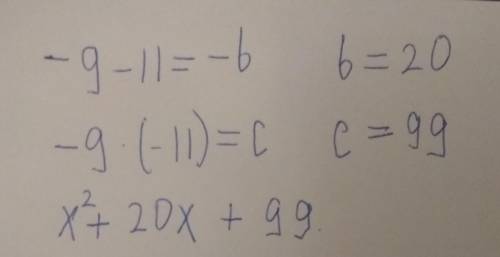 -9-11=-b b=20
-9·(-11)=c c=99
x²+20x+99.